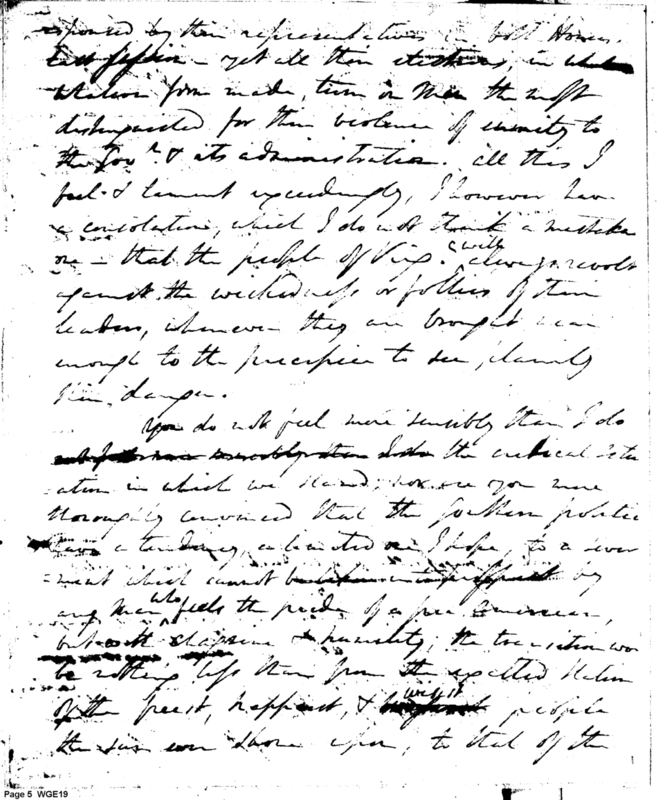 espoused by their representatives in both Houses.
last session – yet all their elections, in
whatever form made, turn on Men the most
distinguished for their violence of enmity to
the Govt & its administration. all this I
feel & lament exceedingly, I however have
a consolation, which I do not think a mistaken
one – that the people of Virga. will always revolt
against the wickedness or follies of their
leaders, whenever they are brought near
enough to the precipice to see, plainly
their, danger.
You do not feel more sensibly than I do
the critical situ
-ation in which we stand; nor are you more
thoroughly convinced that the Southern politics
have a tendency, a limited one I hope, to a
-ment which cannot by
any Man who feels the pride of a free American,
but with & humanity; the transition wou
be nothing less than from the exalted station
of the freest, happiest, & people
the sun ever shone upon, to that of the
Page 5 WGE19